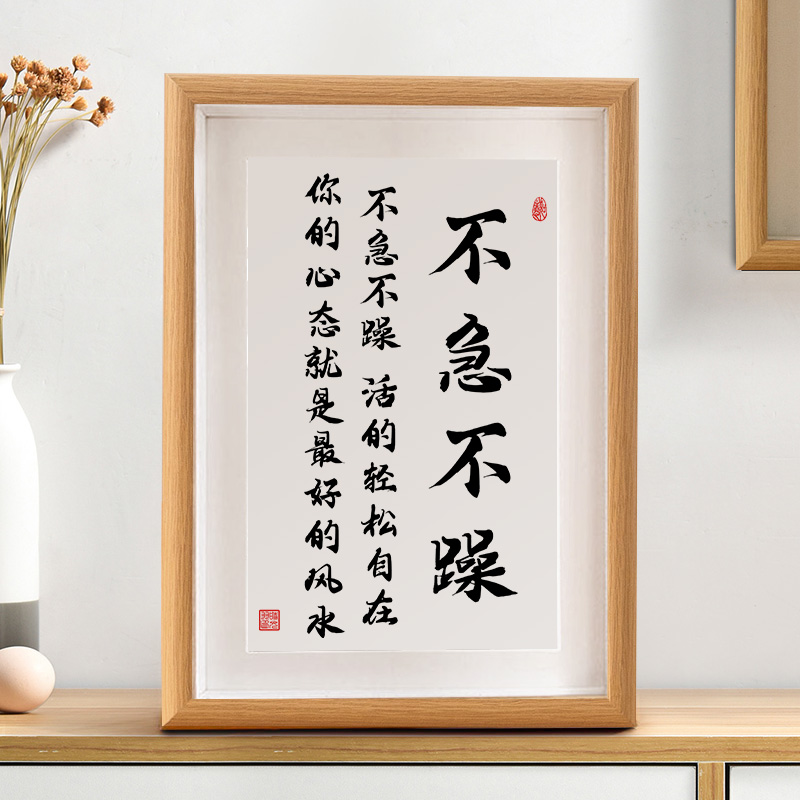 不急不躁
不急不躁 活的轻松自在
你的心态就是最好的风水